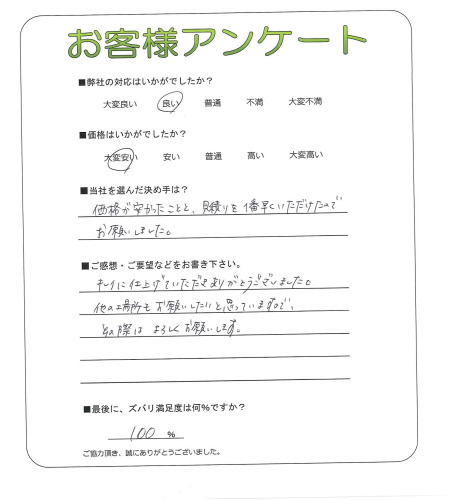 お客様アンケート
■弊社の対応はいかがでしたか？
大変良い 良い 普通 不満 大変不満
■価格はいかがでしたか？
大変安い 安い 普通 高い 大変高い
■当社を選んだ決め手は？
価格が安かったことと、見積りを1番早くいただけたので
お願いしました。
■ご感想・ご要望などをお書き下さい。
キレイに仕上げていただきありがとうございました。
他の場所もお願いしたいと思っていますので、
その際はよろしくお願いします。
■最後に、ズバリ満足度は何％ですか？
100 ％
ご協力頂き、誠にありがとうございました。